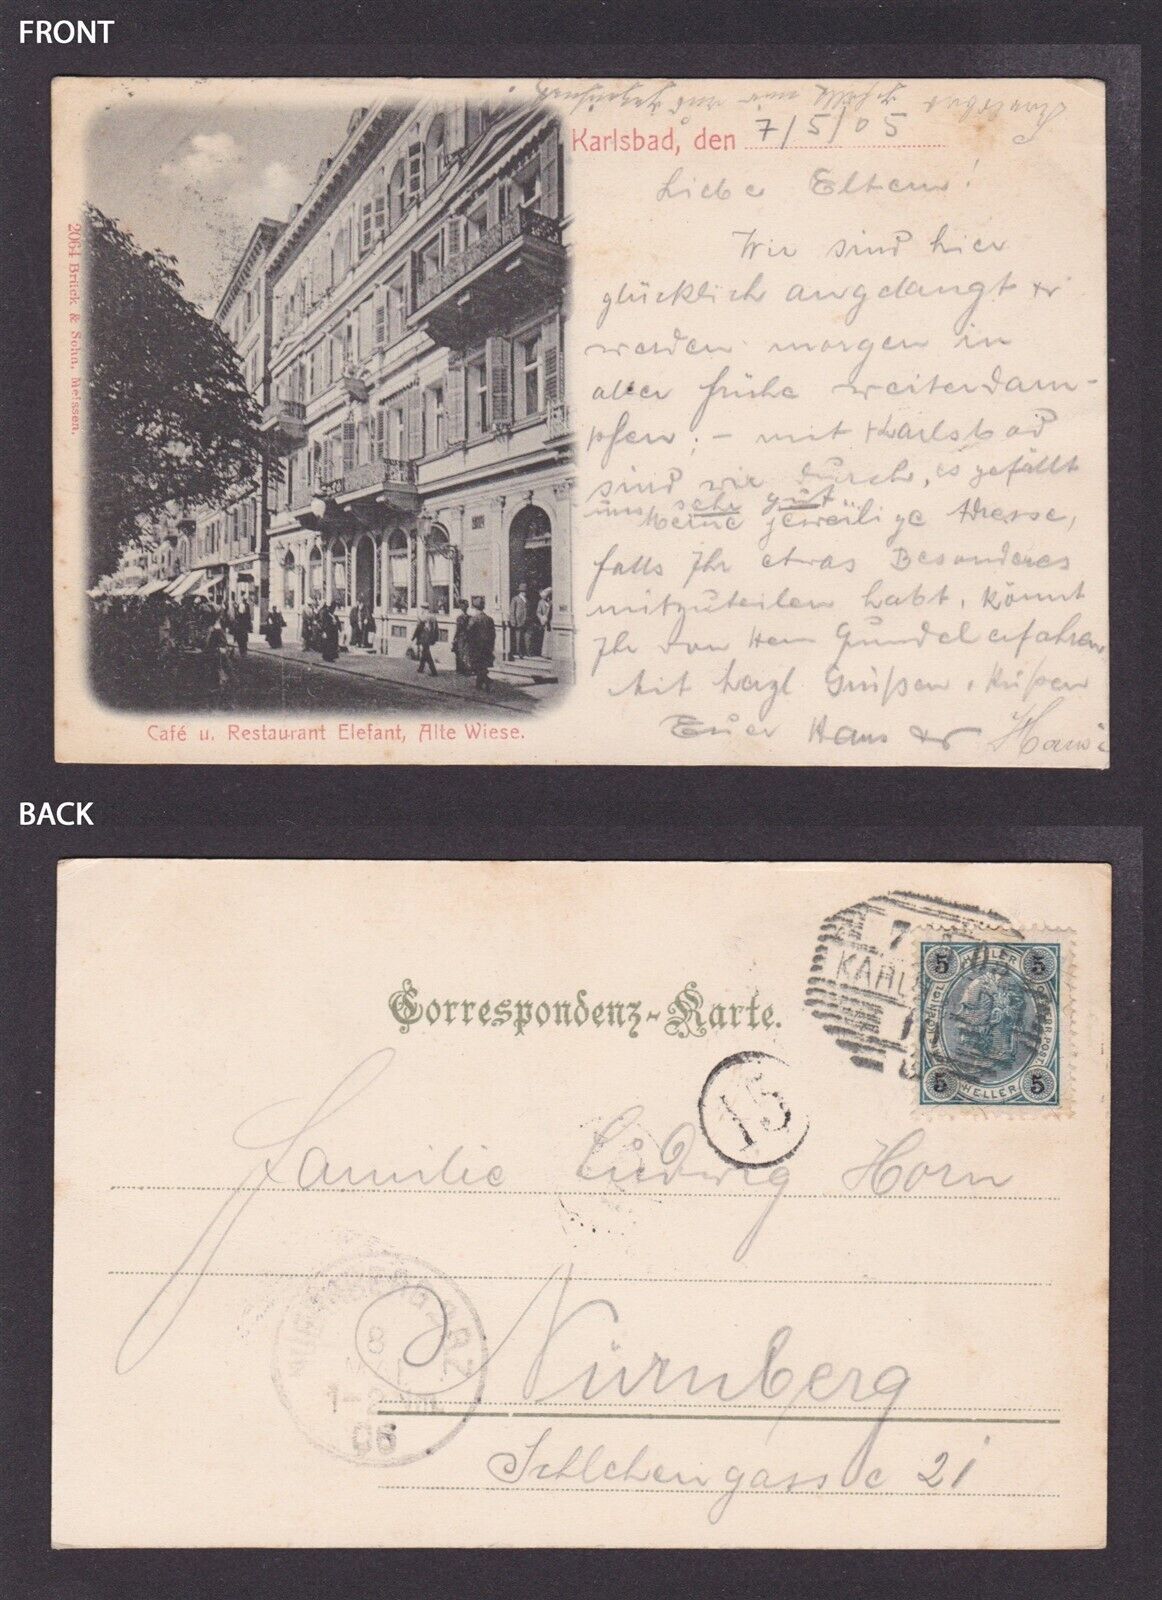 FRONT
Karlsbad, den 7/5/05
Liebe Eltern!
Wir sind hier
glücklich angelangt &
werden morgen in
aller frühe weiterdam-
pfen; - mit Karlsbad
sind wir durch, es gefällt
uns sehr gut
Meine jeweilige Adresse,
falls Ihr etwas Besonderes
mitzuteilen habt, könnt
Ihr von Herrn Gundel erfahren
Mit herzl Grüßen & Küßen
Euer Hans &
2064 Brück & Sohn, Meissen.
Café u. Restaurant Elefant, Alte Wiese.
BACK
7
KARL
5 HELLER 5
5 HELLER 5
Correspondenz-Karte.
15
Familie Ludwig Horn
Nürnberg
8
05
21